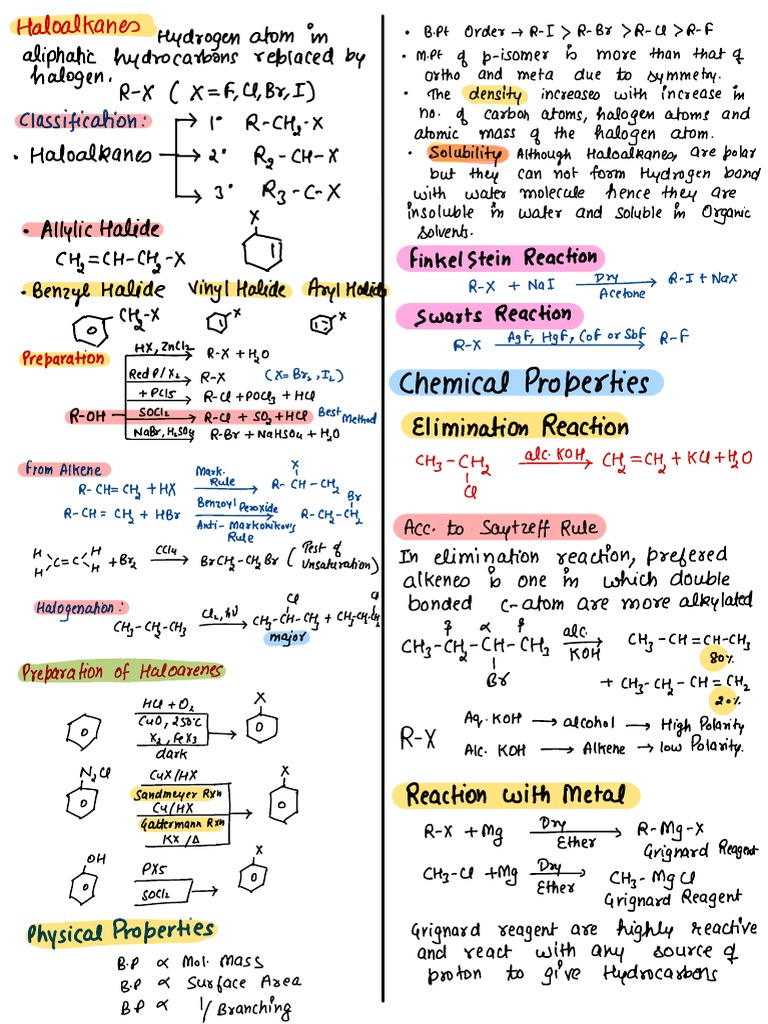 Haloalkanes Hydrogen atom in
aliphatic hydrocarbons replaced by
halogen.
R-X ( X = F, Cl, Br, I )
Classification:
1° R-CH₂-X
• Haloalkanes 2° R₂-CH-X
3° R₃-C-X
• Allylic Halide
X
CH₂=CH-CH₂-X
• Benzyl Halide Vinyl Halide Aryl Halide
CH₂-X X X
Preparation
R-OH
HX, ZnCl₂ R-X + H₂O
Red P/X₂ R-X (X= Br₂, I₂)
+ PCl5 R-Cl + POCl₃ + HCl
SOCl₂ R-Cl + SO₂ + HCl Best Method
NaBr, H₂SO₄ R-Br + NaHSO₄ + H₂O
From Alkene
R-CH=CH₂ + HX Mark. Rule R-CH-CH₂
X
R-CH=CH₂ + HBr Benzoyl Peroxide R-CH₂-CH₂
Br
Anti-Markonikov's Rule
H H
C=C + Br₂ CCl₄ BrCH₂-CH₂Br ( Test of Unsaturation)
H H
Halogenation:
CH₃-CH₂-CH₃ Cl₂, hν CH₃-CH-CH₃ + CH₃-CH₂-CH₂
Cl Cl
major
Preparation of Haloarenes
HCl + O₂
CuO, 250°C
X₂, FeX₃
dark
X
N₂Cl
CuX/HX
Sandmeyer Rxn
Cu/HX
Gattermann Rxn
KX /Δ
X
OH
PX5
SOCl₂
X
Physical Properties
B.P ∝ Mol. Mass
B.P ∝ Surface Area
BP ∝ 1/Branching
• B.Pt Order → R-I > R-Br > R-Cl > R-F
• M.Pt of p-isomer is more than that of
ortho and meta due to symmetry.
• The density increases with increase in
no. of carbon atoms, halogen atoms and
atomic mass of the halogen atom.
• Solubility Although Haloalkanes, are polar
but they can not form Hydrogen bond
with water molecule hence they are
insoluble in water and soluble in Organic
Solvents.
Finkelstein Reaction
R-X + NaI Dry Acetone R-I + NaX
Swarts Reaction
R-X AgF, HgF, CoF or SbF R-F
Chemical Properties
Elimination Reaction
CH₃-CH₂ alc. KOH CH₂=CH₂ + KCl + H₂O
Cl
Acc. to Saytzeff Rule
In elimination reaction, prefered
alkenes is one in which double
bonded c-atom are more alkylated
β α β
CH₃-CH₂-CH-CH₃ alc. KOH CH₃-CH=CH-CH₃
Br 80%
+ CH₃-CH₂-CH=CH₂
20%
R-X
Aq. KOH → alcohol → High Polarity
Alc. KOH → Alkene → low Polarity.
Reaction with Metal
R-X + Mg Dry Ether R-Mg-X
Grignard Reagent
CH₃-Cl + Mg Dry Ether CH₃-MgCl
Grignard Reagent
Grignard reagent are highly reactive
and react with any source of
proton to give Hydrocarbons